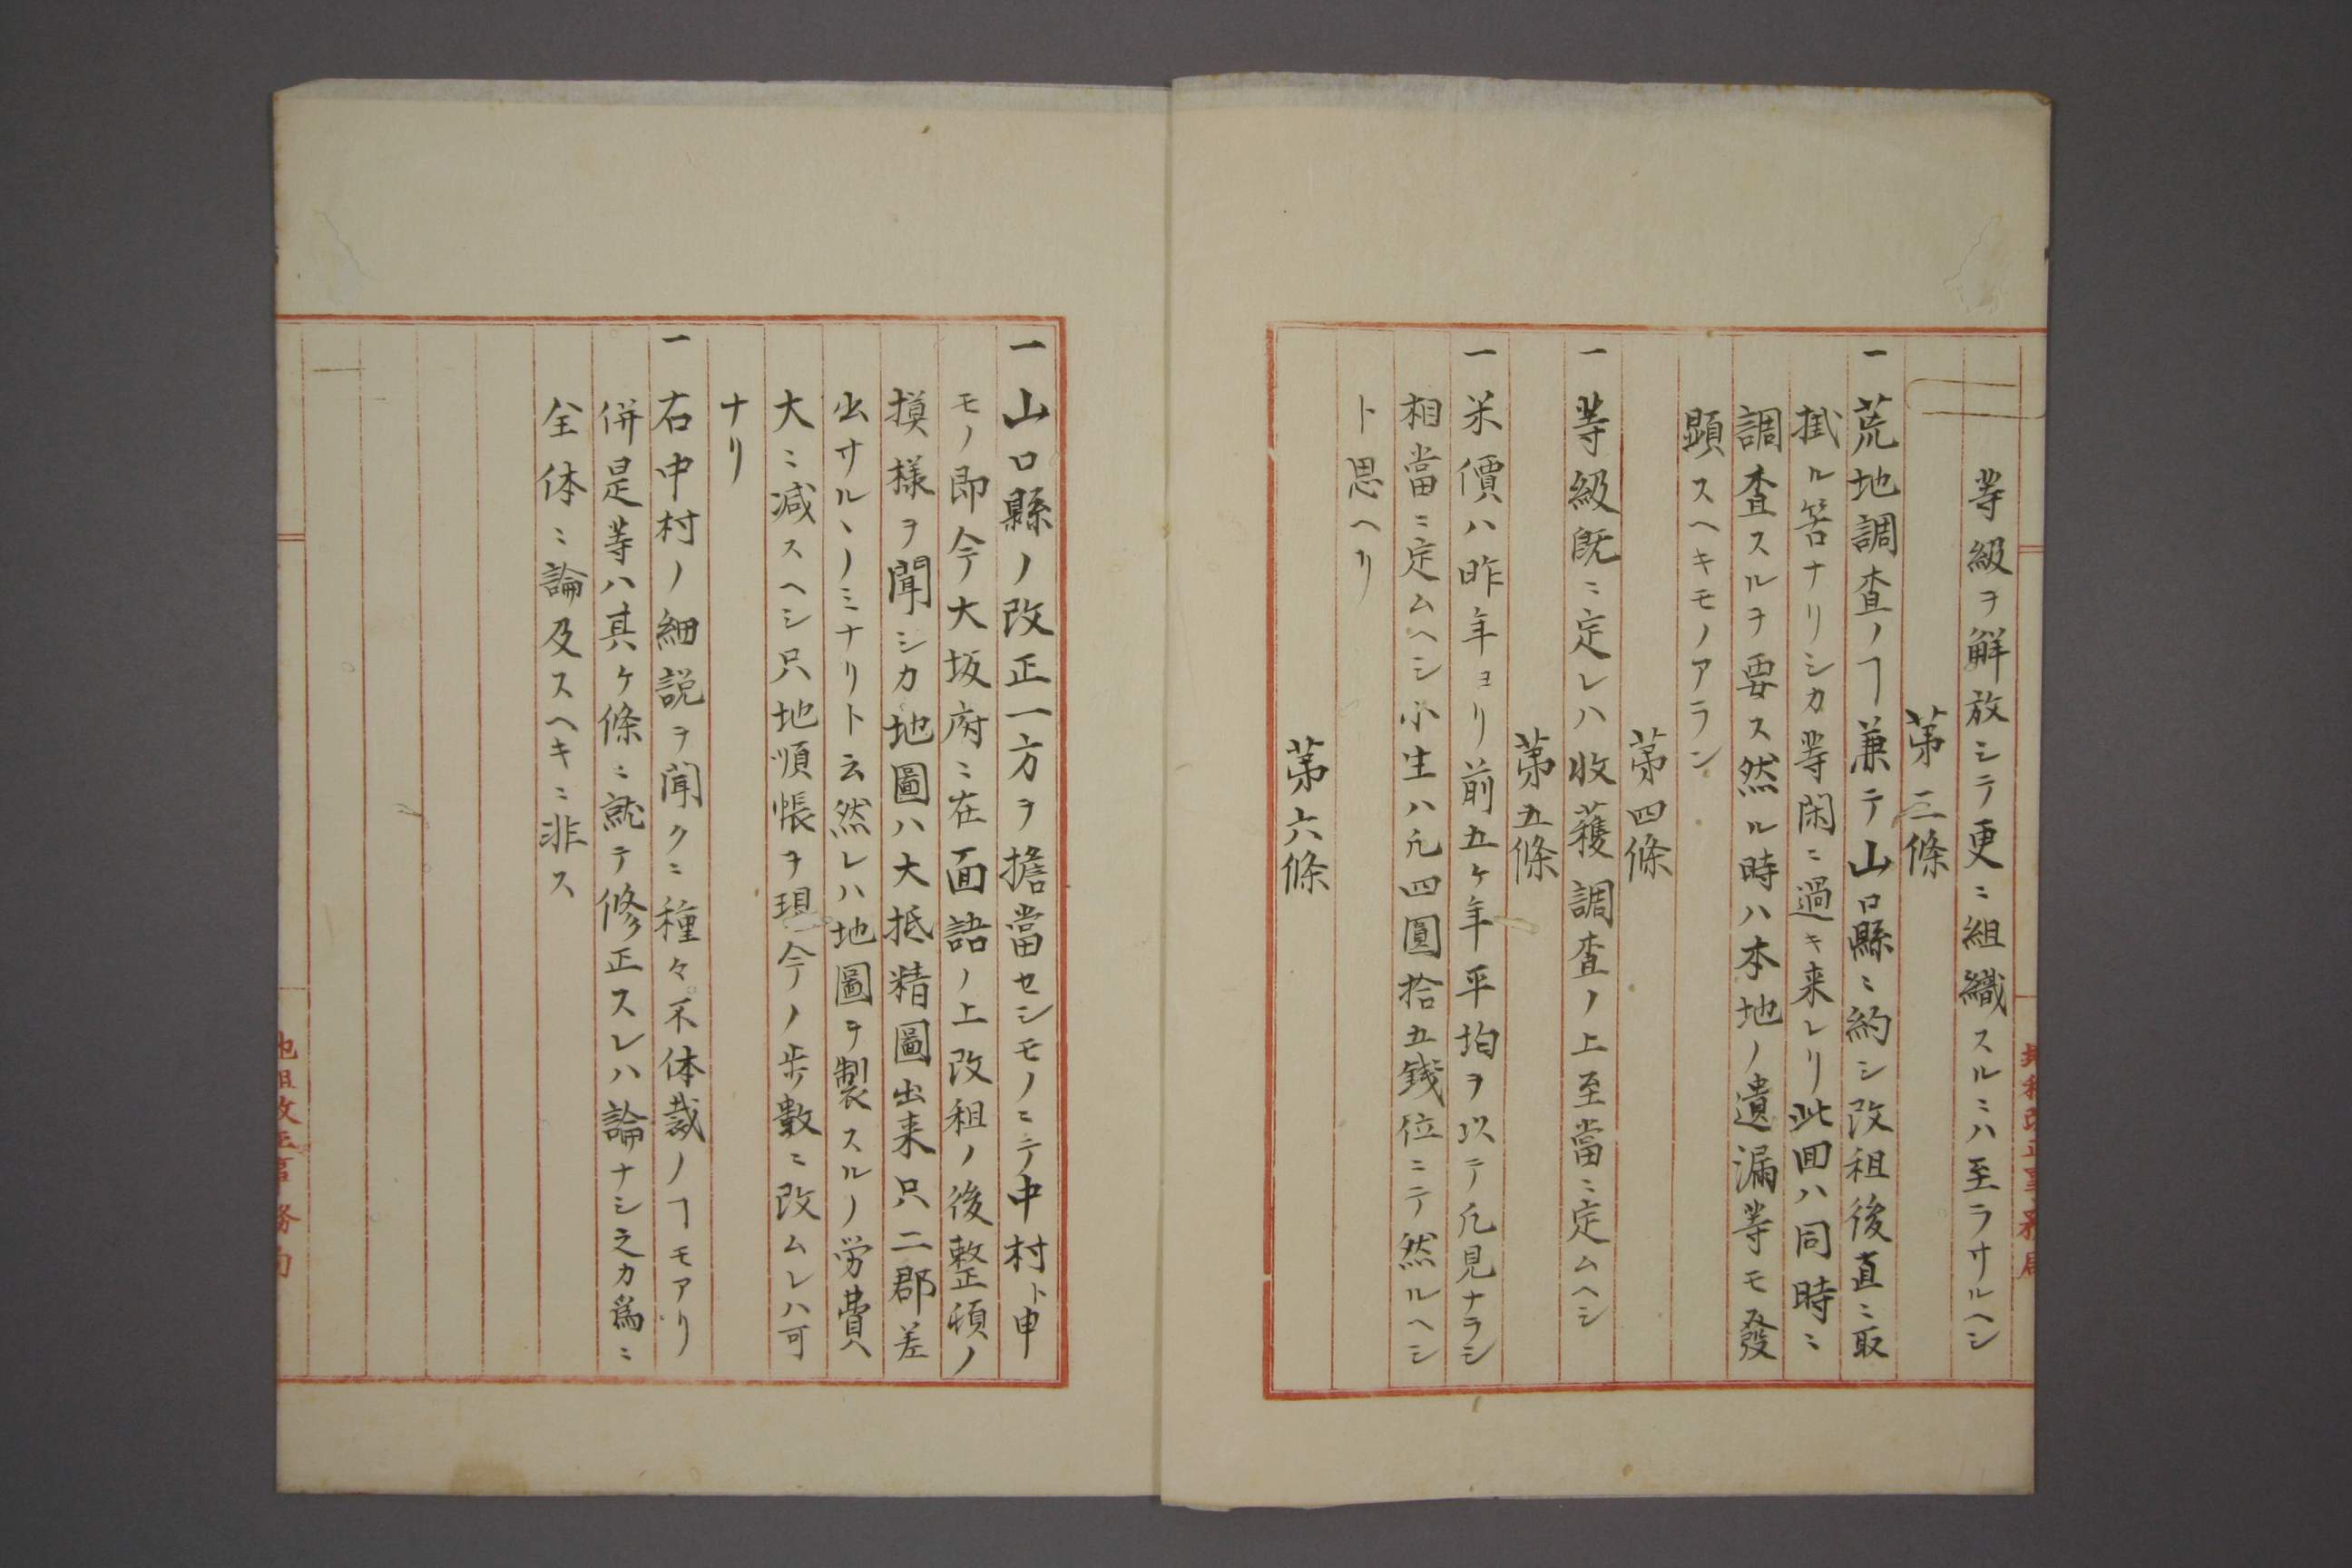 等級ヲ解放シテ更ニ組織スルニハ至ラサルヘシ
第三條
一荒地調査ノヿ兼テ山口縣ニ約シ改租後直ニ取
掛ル筈ナリシカ等閑ニ過キ来レリ此回ハ同時ニ
調査スルヲ要ス然ル時ハ本地ノ遺漏等モ發
顕スヘキモノアラン
第四條
一等級既ニ定レハ收穫調査ノ上至當ニ定ムヘシ
第五條
一米價ハ昨年ヨリ前五ケ年平均ヲ以テ凡見ナラシ
相當ニ定ムヘシ小生ハ凡四圓拾五錢位ニテ然ルヘシ
ト思ヘリ
第六條
一山口縣ノ改正一方ヲ擔當セシモノニテ中村ト申
モノ即今大坂府ニ在面語ノ上改租ノ後整頓ノ
摸様ヲ聞シカ地圖ハ大抵精圖出来只二郡差
出サルヽノミナリト云然レハ地圖ヲ製スルノ労費ハ
大ニ減スヘシ只地順帳ヲ現今ノ歩數ニ改ムレハ可
ナリ
一右中村ノ細説ヲ聞クニ種々不体裁ノヿモアリ
併是等ハ其ケ條ニ就テ修正スレハ論ナシ之カ為ニ
全体ニ論及スヘキニ非ス
地租改正事務局